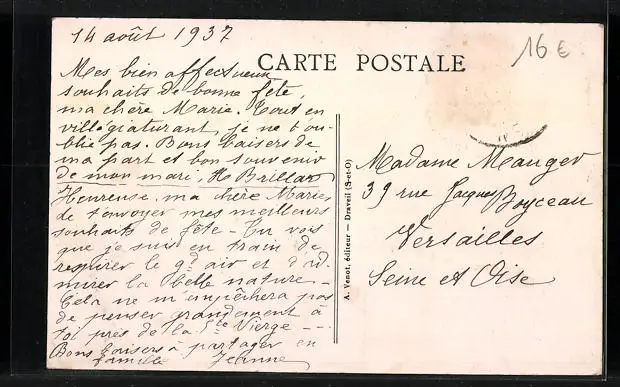 14 août 1937
16 €
CARTE POSTALE
Mes bien affectueux
souhaits de bonne fête,
ma chère Marie. Tout en
villégiaturant, je ne t'ou-
blie pas. Bons baisers de
ma part et bon souvenir
de mon mari, H Brillard
Heureuse, ma chère Marie,
de t'envoyer mes meilleurs
souhaits de fête - Tu vois
que je suis en train de
respirer le gd air et d'ad-
mirer la belle nature -
Cela ne m'empêchera pas
de penser grandement à
toi près de la Ste Vierge ---
Bons baisers à partager en
famille Jeanne
A. Venot, éditeur — Draveil (S-et-O)
Madame Mauger
39 rue Jacques Boyceau
Versailles
Seine et Oise